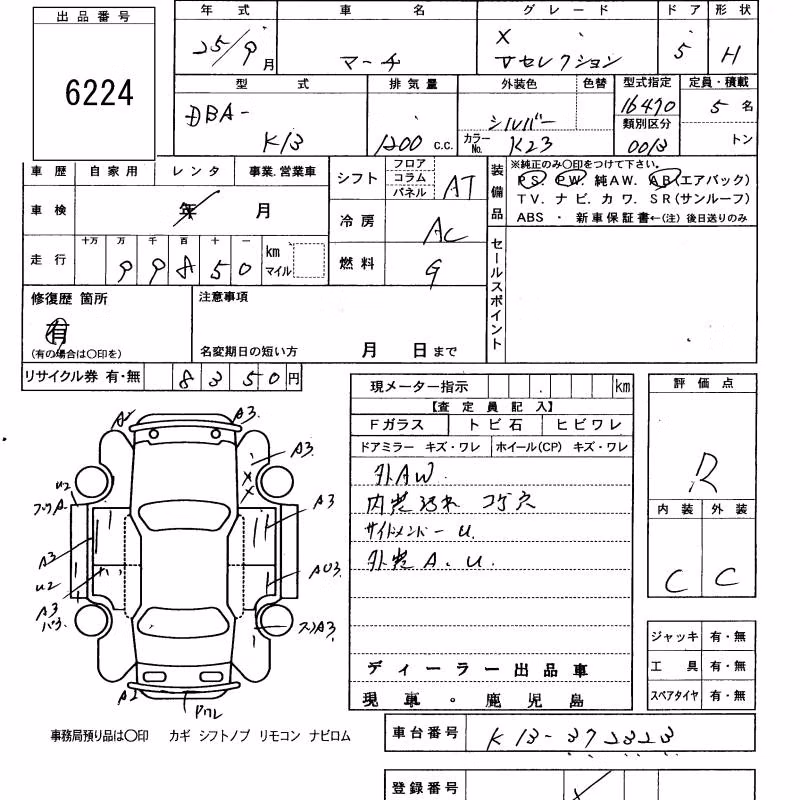 出品番号
6224
年式 車名 グレード ドア 形状
25/9月 マーチ X Vセレクション 5 H
型式 排気量 外装色 色替 型式指定 定員・積載
DBA- 16470 5名
シルバー 類別区分
K13 1200 c.c. カラーNo. K23 0013 トン
車歴 自家用 レンタ 事業.営業車
シフト フロア コラム パネル AT
装備品 ※純正のみ○印をつけて下さい。
PS. PW. 純AW. AB(エアバック)
TV. ナビ. カワ. SR(サンルーフ)
ABS ・ 新車保証書←(注)後日送りのみ
車検 年 月
冷房 AC
走行 十万 万 千 百 十 一
99850 km マイル
燃料 G
セールスポイント
修復歴 箇所 注意事項
有
(有の場合は○印を) 名変期日の短い方 月 日まで
リサイクル券 有・無 8350円
現メーター指示 . km
評価点
R
【査定員記入】
Fガラス トビ石 ヒビワレ
ドアミラー キズ・ワレ ホイール(CP) キズ・ワレ
外AW
内装汚れ コゲ穴
サイドメンバー U.
外装 A. U.
内装 外装
C C
A2 A3.
A3.
U2
A3
A3
AU3.
U2
A3
A3
A2
ワレ
ディーラー出品車
現車・鹿児島
ジャッキ 有・無
工具 有・無
スペアタイヤ 有・無
事務局預り品は○印 カギ シフトノブ リモコン ナビロム
車台番号 K13-372323
登録番号